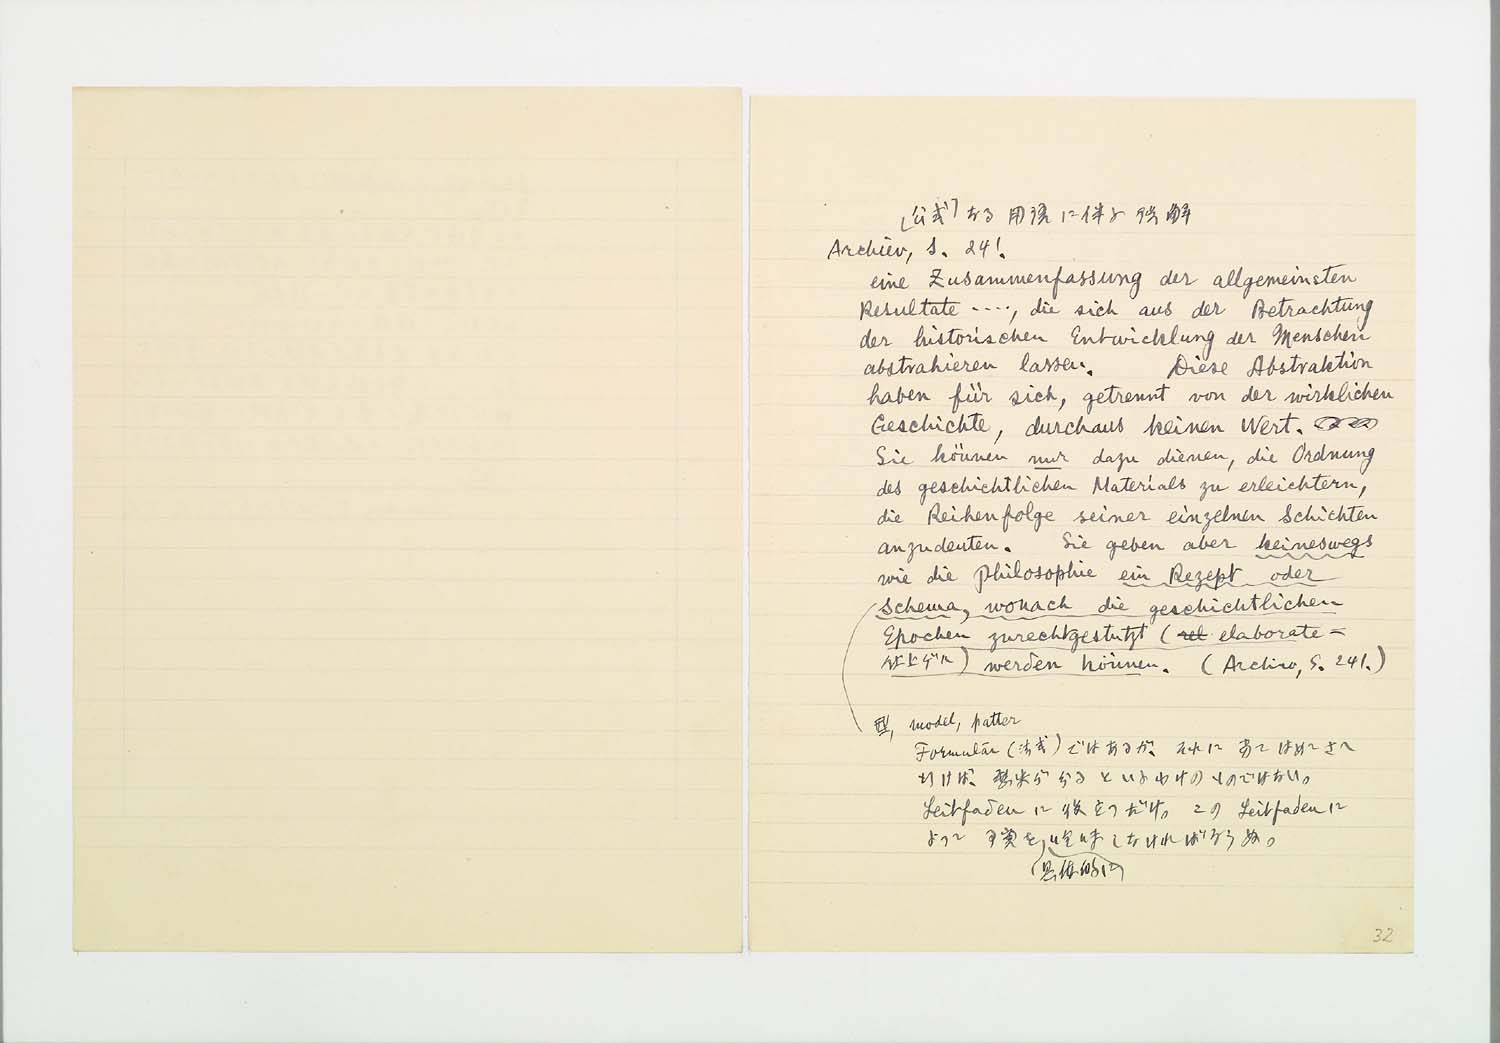 「公式」なる用語に伴ふ誤解
Archiev, S. 241.
eine Zusammenfassung der allgemeinsten
Resultate ...., die sich aus der Betrachtung
der historischen Entwicklung der Menschen
abstrahieren lassen. Diese Abstraktion
haben für sich, getrennt von der wirklichen
Geschichte, durchaus keinen Wert.
Sie können nur dazu dienen, die Ordnung
des geschichtlichen Materials zu erleichtern,
die Reihenfolge seiner einzelnen Schichten
anzudeuten. Sie geben aber keineswegs
wie die Philosophie ein Rezept oder
Schema, wonach die geschichtlichen
Epochen zurechtgestutzt (elaborate =
仕上ゲル) werden können. (Archiv, S. 241.)
型, model, patter
Formulär (法式) ではあるが、それに当てはめてさへ
行けば、歴史が分るといふわけのものではない。
Leitfaden に役立つだけ。この Leitfaden に
よつて事実を吟味しなければならぬ。
(具体的に)
32